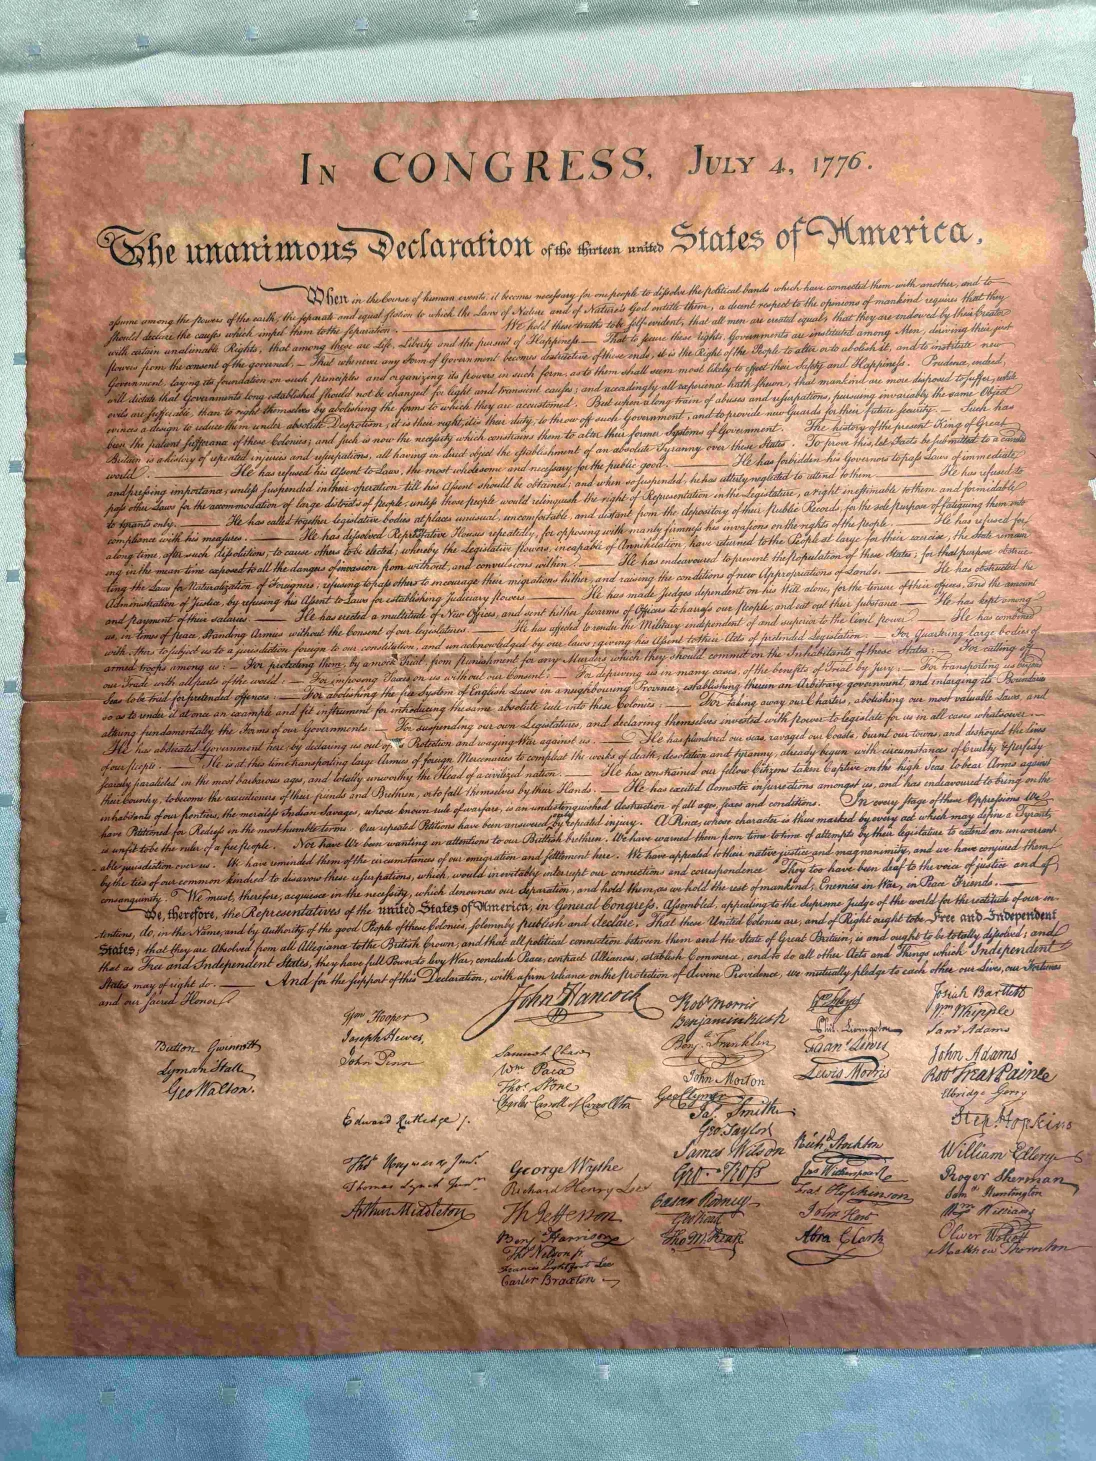 IN CONGRESS, JULY 4, 1776.
The unanimous Declaration of the thirteen united States of America,
When in the Course of human events, it becomes necessary for one people to dissolve the political bands which have connected them with another, and to
assume among the powers of the earth, the separate and equal station to which the Laws of Nature and of Nature's God entitle them, a decent respect to the opinions of mankind requires that they
should declare the causes which impel them to the separation. We hold these truths to be self-evident, that all men are created equal, that they are endowed by their Creator
with certain unalienable Rights, that among these are Life, Liberty and the pursuit of Happiness — That to secure these rights, Governments are instituted among Men, deriving their just
powers from the consent of the governed, — That whenever any Form of Government becomes destructive of these ends, it is the Right of the People to alter or to abolish it, and to institute new
Government, laying its foundation on such principles and organizing its powers in such form, as to them shall seem most likely to effect their Safety and Happiness. Prudence, indeed,
will dictate that Governments long established should not be changed for light and transient causes; and accordingly all experience hath shewn, that mankind are more disposed to suffer, while
evils are sufferable, than to right themselves by abolishing the forms to which they are accustomed. But when a long train of abuses and usurpations, pursuing invariably the same Object
evinces a design to reduce them under absolute Despotism, it is their right, it is their duty, to throw off such Government, and to provide new Guards for their future security. — Such has
been the patient sufferance of these Colonies; and such is now the necessity which constrains them to alter their former Systems of Government. The history of the present King of Great
Britain is a history of repeated injuries and usurpations, all having in direct object the establishment of an absolute Tyranny over these States. To prove this, let Facts be submitted to a candid
world. He has refused his Assent to Laws, the most wholesome and necessary for the public good. He has forbidden his Governors to pass Laws of immediate
and pressing importance, unless suspended in their operation till his Assent should be obtained; and when so suspended, he has utterly neglected to attend to them. He has refused to
pass other Laws for the accommodation of large districts of people, unless those people would relinquish the right of Representation in the Legislature, a right inestimable to them and formidable
to tyrants only. He has called together legislative bodies at places unusual, uncomfortable, and distant from the depository of their Public Records, for the sole purpose of fatiguing them into
compliance with his measures. He has dissolved Representative Houses repeatedly, for opposing with manly firmness his invasions on the rights of the people. He has refused for
a long time, after such dissolutions, to cause others to be elected; whereby the Legislative powers, incapable of Annihilation, have returned to the People at large for their exercise; the State remain
ing in the mean time exposed to all the dangers of invasion from without, and convulsions within. He has endeavoured to prevent the population of these States; for that purpose obstruc
ting the Laws for Naturalization of Foreigners; refusing to pass others to encourage their migrations hither, and raising the conditions of new Appropriations of Lands. He has obstructed the
Administration of Justice, by refusing his Assent to Laws for establishing Judiciary powers. He has made Judges dependent on his Will alone, for the tenure of their offices, and the amount
and payment of their salaries. He has erected a multitude of New Offices, and sent hither swarms of Officers to harrass our people, and eat out their substance. He has kept among
us, in times of peace, Standing Armies without the Consent of our legislatures. He has affected to render the Military independent of and superior to the Civil power. He has combined
with others to subject us to a jurisdiction foreign to our constitution, and unacknowledged by our laws; giving his Assent to their Acts of pretended Legislation: — For Quartering large bodies of
armed troops among us: — For protecting them, by a mock Trial, from punishment for any Murders which they should commit on the Inhabitants of these States: — For cutting off
our Trade with all parts of the world: — For imposing Taxes on us without our Consent: — For depriving us in many cases, of the benefits of Trial by Jury; — For transporting us beyond
Seas to be tried for pretended offences — For abolishing the free System of English Laws in a neighbouring Province, establishing therein an Arbitrary government, and enlarging its Boundaries
so as to render it at once an example and fit instrument for introducing the same absolute rule into these Colonies: — For taking away our Charters, abolishing our most valuable Laws, and
altering fundamentally the Forms of our Governments: — For suspending our own Legislatures, and declaring themselves invested with power to legislate for us in all cases whatsoever. —
He has abdicated Government here, by declaring us out of Protection and waging War against us. He has plundered our seas, ravaged our Coasts, burnt our towns, and destroyed the lives
of our people. He is at this time transporting large Armies of foreign Mercenaries to compleat the works of death, desolation and tyranny, already begun with circumstances of Cruelty & perfidy
scarcely paralleled in the most barbarous ages, and totally unworthy the Head of a civilized nation. He has constrained our fellow Citizens taken Captive on the high Seas to bear Arms against
their Country, to become the executioners of their friends and Brethren, or to fall themselves by their Hands. He has excited domestic insurrections amongst us, and has endeavoured to bring on the
inhabitants of our frontiers, the merciless Indian Savages, whose known rule of warfare, is an undistinguished destruction of all ages, sexes and conditions. In every stage of these Oppressions We
have Petitioned for Redress in the most humble terms: Our repeated Petitions have been answered only by repeated injury. A Prince, whose character is thus marked by every act which may define a Tyrant,
is unfit to be the ruler of a free people. Nor have We been wanting in attentions to our Brittish brethren. We have warned them from time to time of attempts by their legislature to extend an unwarrant
able jurisdiction over us. We have reminded them of the circumstances of our emigration and settlement here. We have appealed to their native justice and magnanimity, and we have conjured them
by the ties of our common kindred to disavow these usurpations, which, would inevitably interrupt our connections and correspondence They too have been deaf to the voice of justice and of
consanguinity. We must, therefore, acquiesce in the necessity, which denounces our Separation, and hold them, as we hold the rest of mankind, Enemies in War, in Peace Friends.
We, therefore, the Representatives of the united States of America, in General Congress, Assembled, appealing to the Supreme Judge of the world for the rectitude of our in
tentions, do, in the Name, and by Authority of the good People of these Colonies, solemnly publish and declare, That these United Colonies are, and of Right ought to be Free and Independent
States; that they are Absolved from all Allegiance to the British Crown, and that all political connection between them and the State of Great Britain, is and ought to be totally dissolved; and
that as Free and Independent States, they have full Power to levy War, conclude Peace, contract Alliances, establish Commerce, and to do all other Acts and Things which Independent
States may of right do. And for the support of this Declaration, with a firm reliance on the protection of divine Providence, we mutually pledge to each other our Lives, our Fortunes
and our sacred Honor.
John Hancock
Button Gwinnett
Lyman Hall
Geo Walton.
Wm Hooper
Joseph Hewes,
John Penn
Edward Rutledge /.
Thos Heyward Junr.
Thomas Lynch Junr.
Arthur Middleton
Samuel Chase
Wm Paca
Thos Stone
Charles Carroll of Carrollton
George Wythe
Richard Henry Lee
Th Jefferson
Benj Harrison
Thos Nelson jr.
Francis Lightfoot Lee
Carter Braxton
Robt Morris
Benjamin Rush
Benj. Franklin
John Morton
Geo Clymer
Jas. Smith
Geo. Taylor
James Wilson
Geo. Ross
Caesar Rodney
Geo Read
Tho M:Kean
Wm Floyd
Phil. Livingston
Frans. Lewis
Lewis Morris
Richd. Stockton
Jno Witherspoon
Fras. Hopkinson
John Hart
Abra Clark
Josiah Bartlett
Wm Whipple
Saml Adams
John Adams
Robt Treat Paine
Elbridge Gerry
Step. Hopkins
William Ellery
Roger Sherman
Sam. Huntington
Wm Williams
Oliver Wolcott
Matthew Thornton